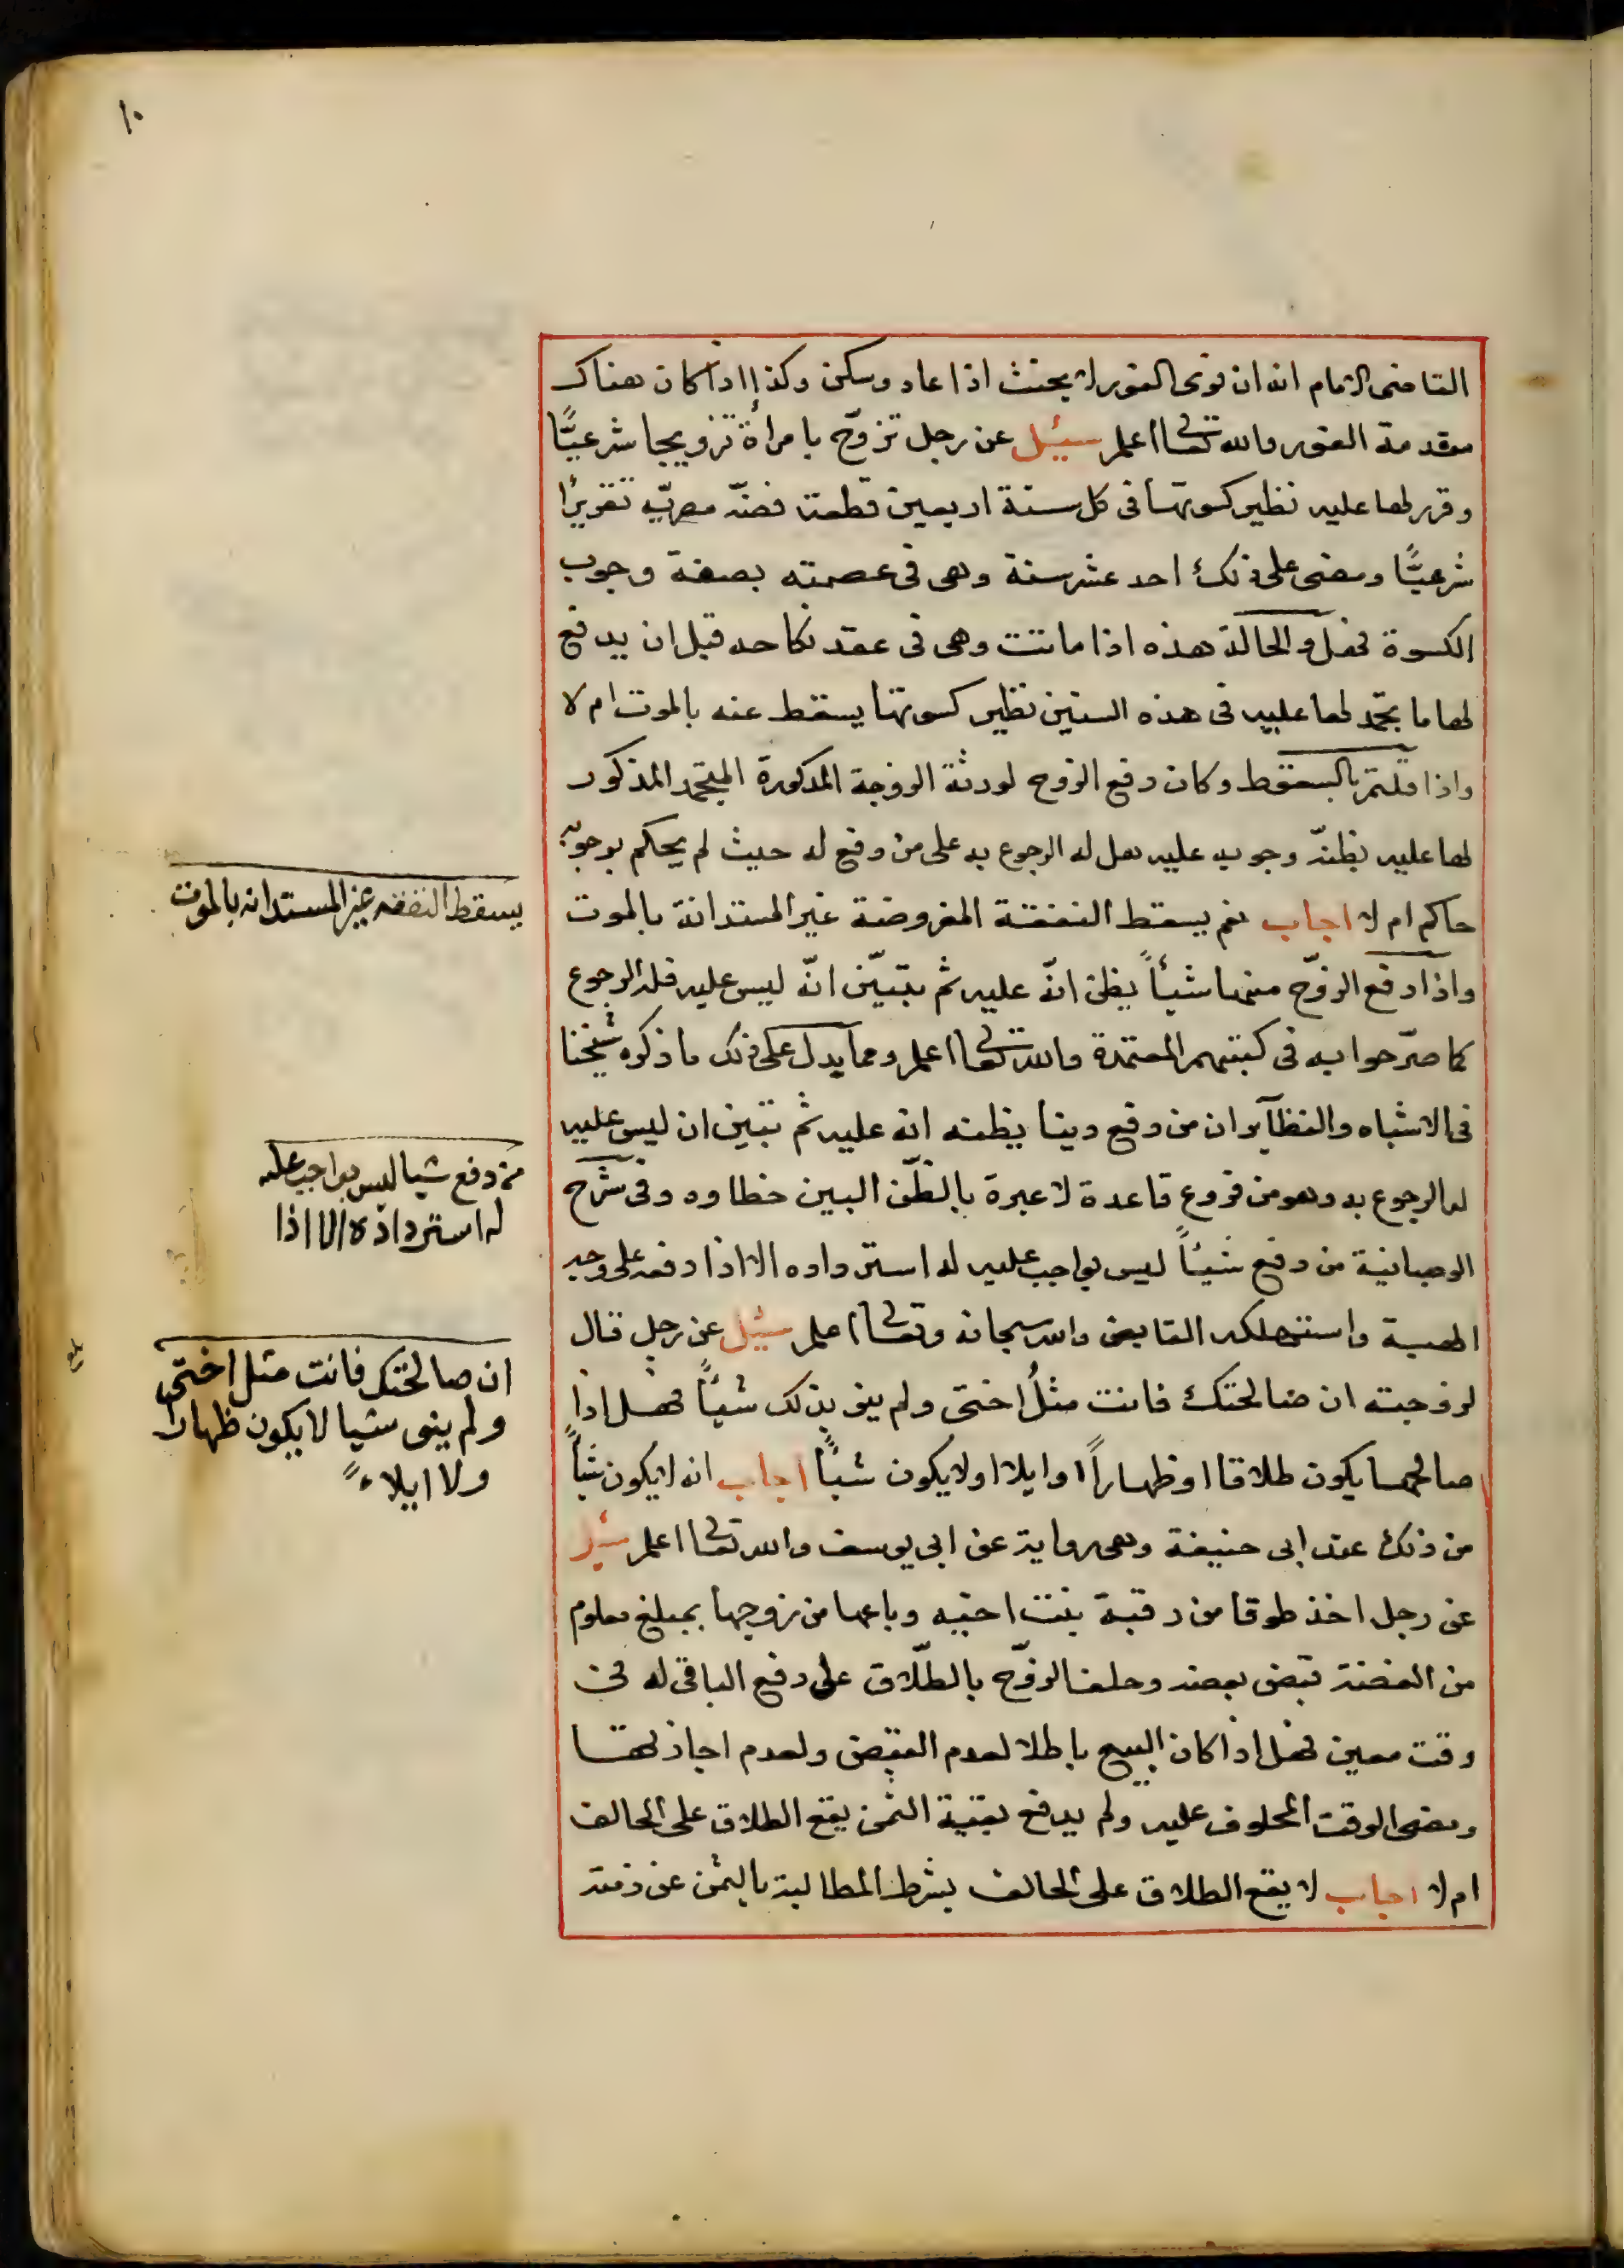 ١٠
القاضى الامام انه ان نوى الفور لا يحنث اذا عاد وسكن وكذا اذا كان هناك
مقدمة الفور والله تعالى اعلم سئيل عن رجل تزوّج بامرأة تزويجا شرعيًّا
وقرر لها عليه نظير كسوتها فى كل سنة اربعين قطعة فضّة مصريّة تقريرًا
شرعيًّا ومضى على ذلك احد عشر سنة وهى فى عصمته بصفة وجوب
الكسوة فهل والحالة هذه اذا ماتت وهى فى عقد نكاحه قبل ان يدفع
لها ما تجمد لها عليه فى هذه السنين نظير كسوتها يسقط عنه بالموت ام لا
واذا قلتم بالسقوط وكان دفع الزوج لورثة الزوجة المذكورة المتجمد المذكور
لها عليه بظنّه وجوبه عليه هل له الرجوع به على من دفع له حيث لم يحكم بوجوبه
حاكم ام لا اجاب نعم يسقط النفقة المفروضة غير المستدانة بالموت
واذا دفع الزوّج منها شيأً يظن انّه عليه ثم تبيّن انّه ليس عليه فله الرجوع
كما صرّحوا به فى كتبهم المعتمدة والله تعالى اعلم ومما يدل على ذلك ما ذكره شيخنا
فى الاشباه والنظآير ان من دفع دينا يظنه انه عليه ثم تبين ان ليس عليه
له الرجوع به وهو من فروع قاعدة لا عبرة بالظّن البين خطاوه وفى شرح
الوهبانية من دفع شيئاً ليس بواجب عليه له استرداده الا اذا دفعه على وجه
الهبة واستهلكه القابض والله سبحانه وتعالى اعلم سئيل عن رجل قال
لزوجته ان صالحتك فانت مثلُ اختى ولم ينو بذلك شيأً فهل اذا
صالحها يكون طلاقا او ظهاراً او ايلا اولا يكون شيأً اجاب انه لا يكون شيأً
من ذلك عند ابى حنيفة وهى رواية عن ابى يوسف والله تعالى اعلم سئيل
عن رجل اخذ طوقا من رقبة بنت اخيه وباعها من زوجها بمبلغ معلوم
من الفضة قبض بعضه وحلف الزوّج بالطّلاق على دفع الباقى له فى
وقت معين فهل اذا كان البيع باطلا لعدم القبض ولعدم اجازتها
ومضى الوقت المحلوف عليه ولم يدفع بقية الثمن يقع الطلاق على الحالف
ام لا اجاب لا يقع الطلاق على الحالف بشرط المطالبة بالثمن عن ذمته
يسقط النفقه غير المستدانه بالموت
من دفع شيا ليس بواجب عليه
له استرداده الا اذا
ان صالحتك فانت مثل اختى
ولم ينوى شيا لا يكون ظهارا
ولا ايلاءً